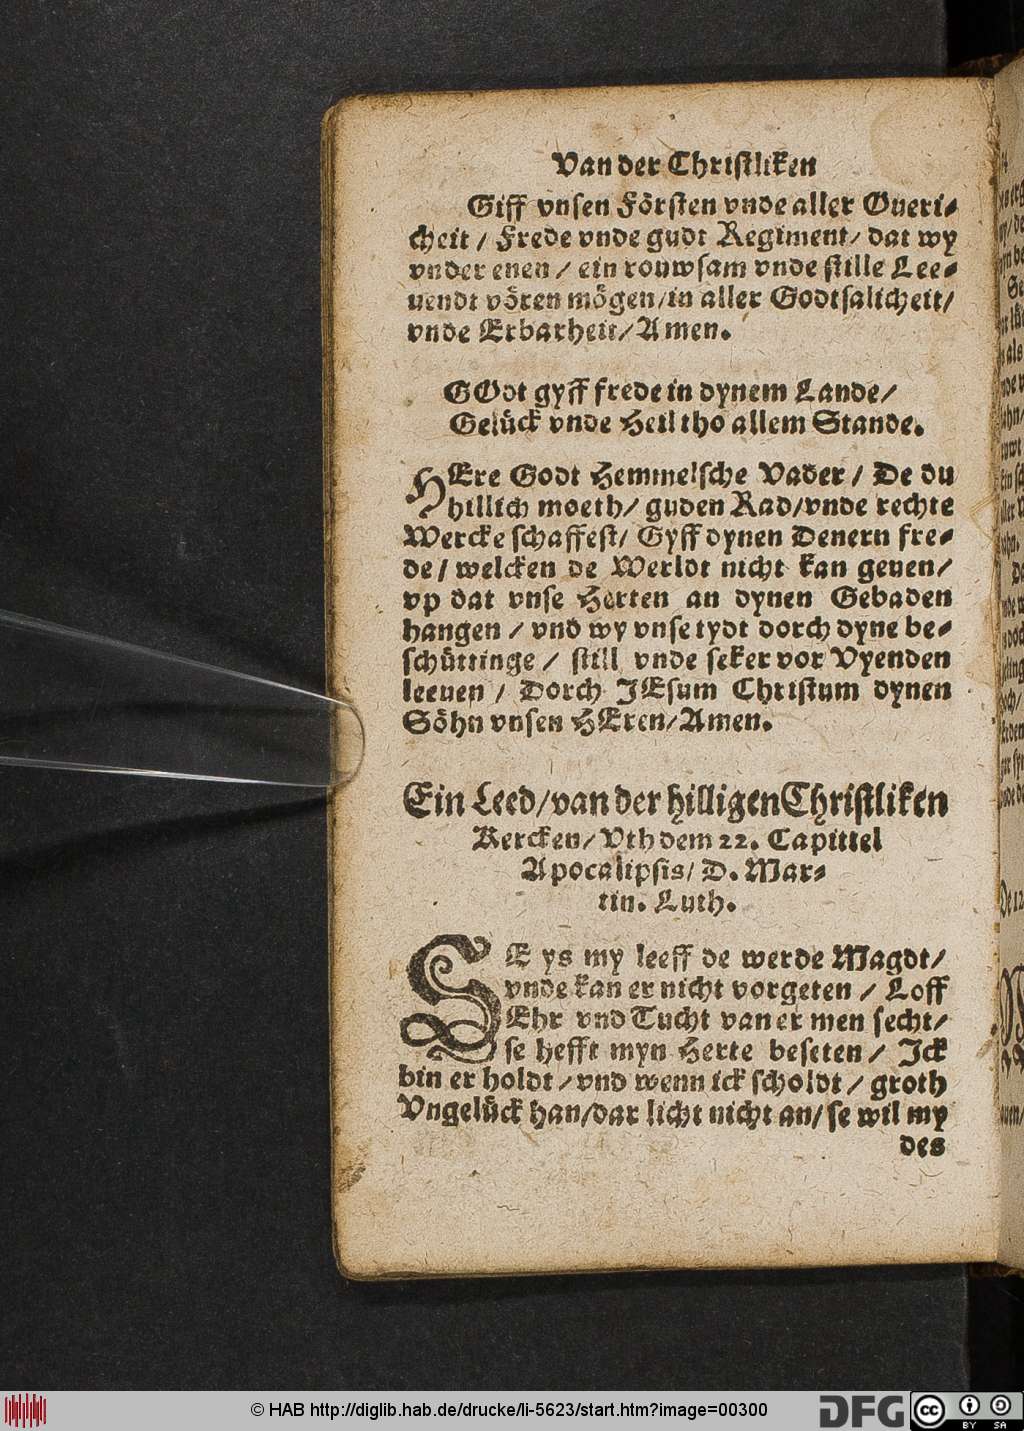 Van der Christliken
Giff vnsen Försten vnde aller Oueri-
cheit / Frede vnde gudt Regiment / dat wy
vnder enen / ein rouwsam vnde stille Lee-
uendt vören mögen / in aller Godtsalicheit /
vnde Erbarheit / Amen.
GOdt gyff frede in dynem Lande /
Gelück vnde Heil tho allem Stande.
HEre Godt Hemmelsche Vader / De du
hillich moeth / guden Rad / vnde rechte
Wercke schaffest / Gyff dynen Denern fre-
de / welcken de Werldt nicht kan geuen /
vp dat vnse Herten an dynen Gebaden
hangen / vnd wy vnse tydt dorch dyne be-
schüttinge / still vnde seker vor Vyenden
leeuen / Dorch JEsum Christum dynen
Söhn vnsen HEren / Amen.
Ein Leed / van der hilligen Christliken
Kercken / Vth dem 22. Capittel
Apocalipsis / D. Mar-
tin. Luth.
SE ys my leeff de werde Magdt /
vnde kan er nicht vorgeten / Loff
Ehr vnd Tucht van er men secht /
se hefft myn Herte beseten / Ick
bin er holdt / vnd wenn ick scholdt / groth
Vngelück han / dar licht nicht an / se wil my
des
© HAB http://diglib.hab.de/drucke/li-5623/start.htm?image=00300
DFG
cc BY SA